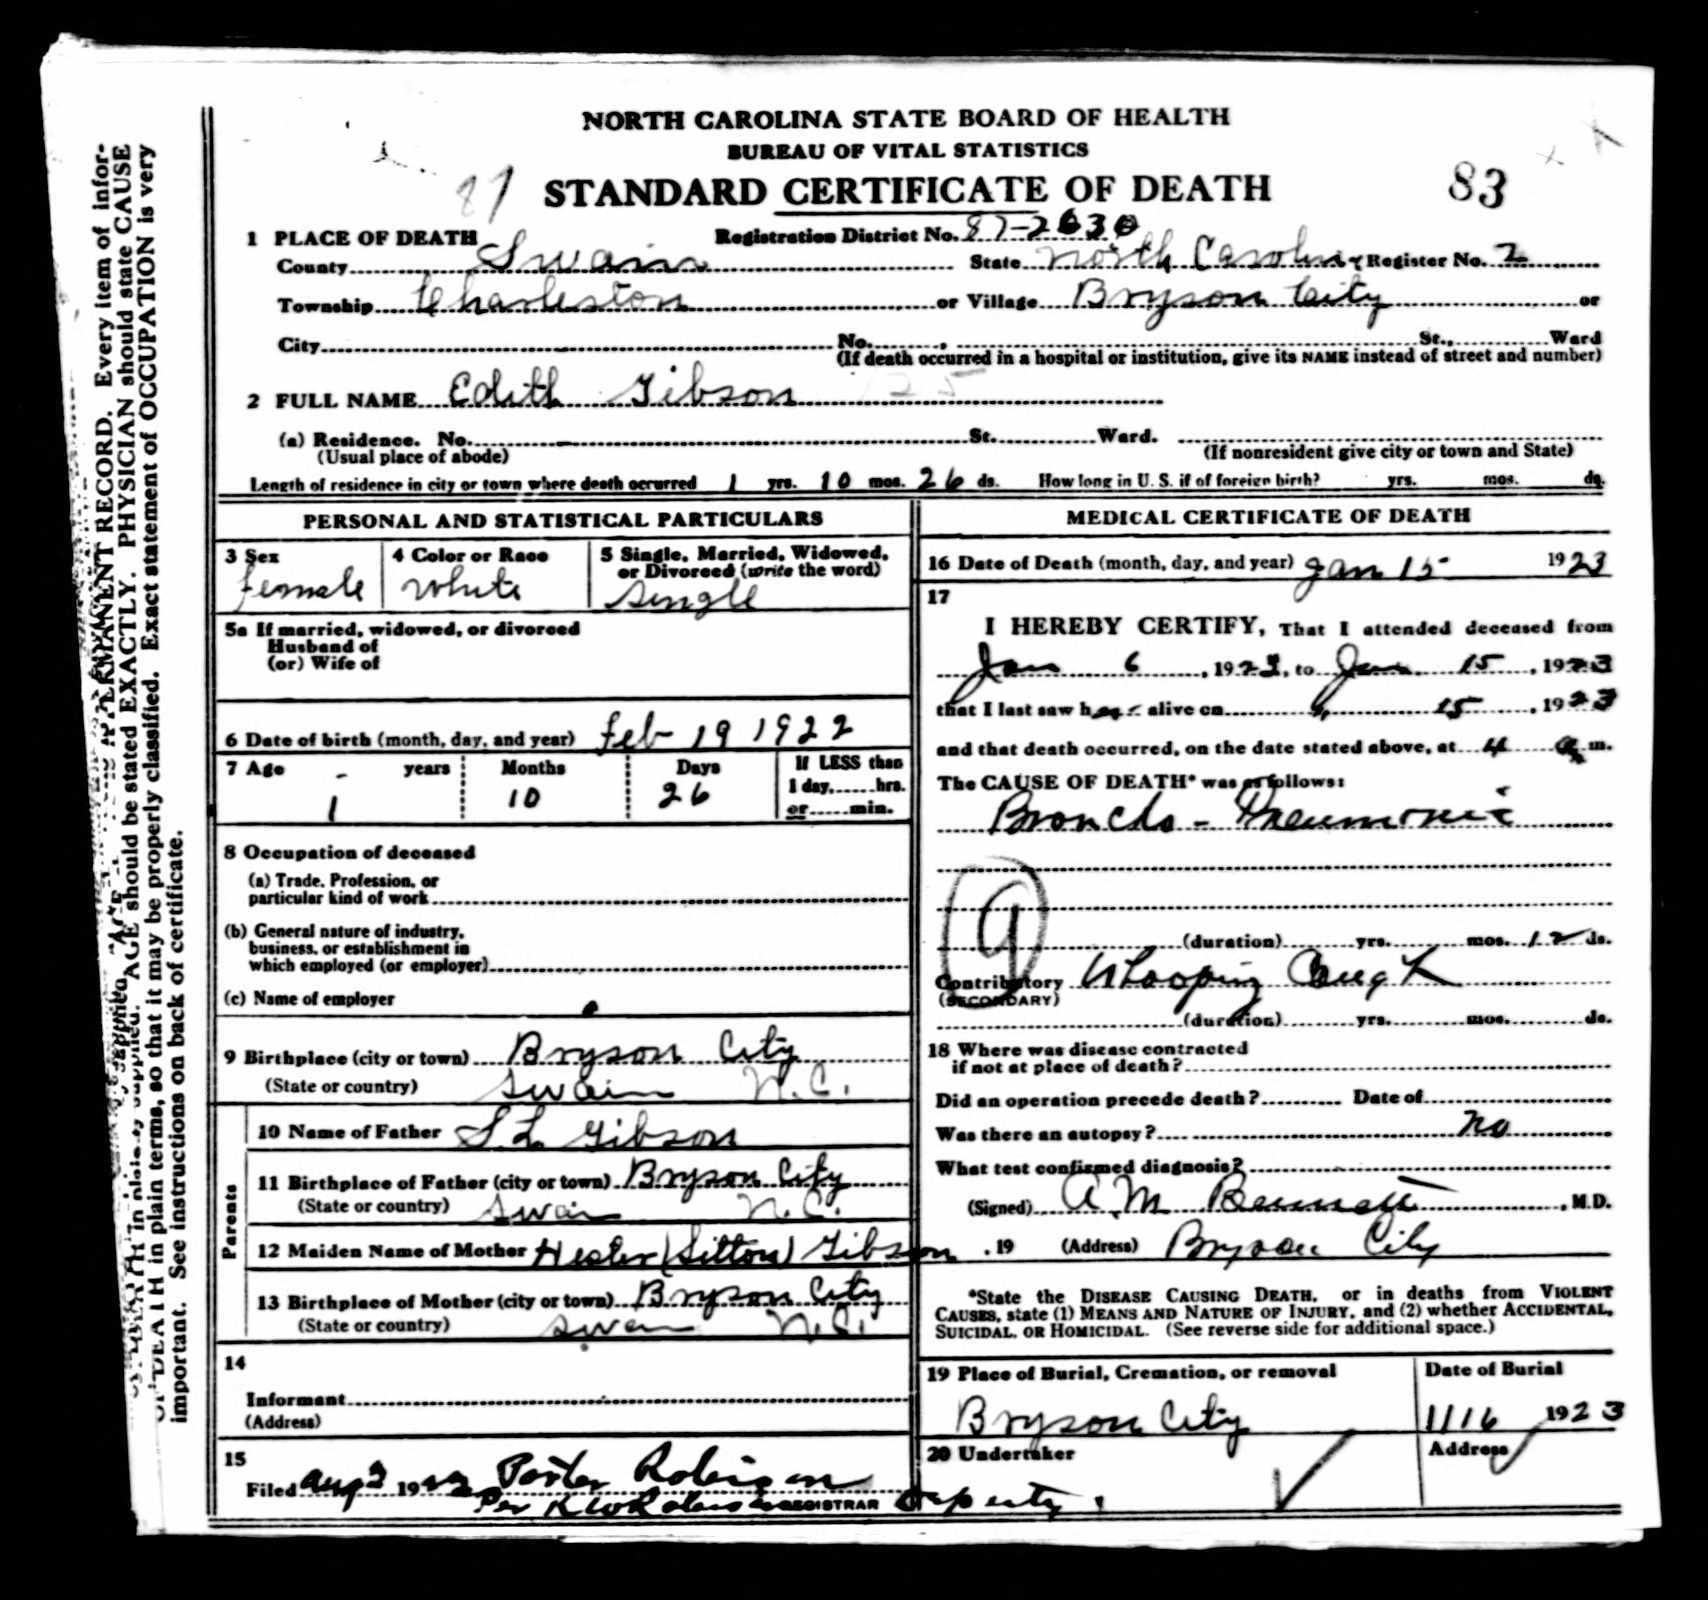 NORTH CAROLINA STATE BOARD OF HEALTH
BUREAU OF VITAL STATISTICS
STANDARD CERTIFICATE OF DEATH
83
1 PLACE OF DEATH Registration District No. 87-2630
County Swain State North Carolina Register No. 2
Township Charleston or Village Bryson City or
City No. St., Ward
(If death occurred in a hospital or institution, give its NAME instead of street and number)
2 FULL NAME Edith Gibson
(a) Residence. No. St. Ward.
(Usual place of abode) (If nonresident give city or town and State)
Length of residence in city or town where death occurred 1 yrs. 10 mos. 26 ds. How long in U. S. if of foreign birth? yrs. mos. ds.
PERSONAL AND STATISTICAL PARTICULARS
3 Sex
Female
4 Color or Race
White
5 Single, Married, Widowed,
or Divorced (write the word)
Single
5a If married, widowed, or divorced
Husband of
(or) Wife of
6 Date of birth (month, day, and year) Feb 19 1922
7 Age years Months Days If LESS than
1 day, hrs.
1 10 26
or min.
8 Occupation of deceased
(a) Trade, Profession, or
particular kind of work
(b) General nature of industry,
business, or establishment in
which employed (or employer)
(c) Name of employer
9 Birthplace (city or town) Bryson City
(State or country) Swain N.C.
Parents
10 Name of Father S L Gibson
11 Birthplace of Father (city or town) Bryson City
(State or country) Swain N.C.
12 Maiden Name of Mother Hester (Sitton) Gibson
13 Birthplace of Mother (city or town) Bryson City
(State or country) Swain N.C.
14
Informant
(Address)
15
Filed Aug 3 19 Porter Robinson
Per K W Robinson REGISTRAR Deputy.
MEDICAL CERTIFICATE OF DEATH
16 Date of Death (month, day, and year) Jan 15 1923
17
I HEREBY CERTIFY, That I attended deceased from
Jan 6, 1923, to Jan. 15, 1923
that I last saw her alive on " 15, 1923
and that death occurred, on the date stated above, at 4 a m.
The CAUSE OF DEATH* was as follows:
Broncho-Pneumonia
9
(duration) yrs. mos. 12 ds.
Contributory Whooping Cough
(SECONDARY)
(duration) yrs. mos. ds.
18 Where was disease contracted
if not at place of death?
Did an operation precede death? Date of
Was there an autopsy? no
What test confirmed diagnosis?
(Signed) A M Bennett, M.D.
, 19 (Address) Bryson City
*State the DISEASE CAUSING DEATH, or in deaths from VIOLENT
CAUSES, state (1) MEANS AND NATURE OF INJURY, and (2) whether ACCIDENTAL,
SUICIDAL, OR HOMICIDAL. (See reverse side for additional space.)
19 Place of Burial, Cremation, or removal
Bryson City
Date of Burial
1/16 1923
20 Undertaker
Address
PERMANENT RECORD. Every item of infor-
AGE should be stated EXACTLY. PHYSICIAN should state CAUSE
OF DEATH in plain terms, so that it may be properly classified. Exact statement of OCCUPATION is very
important. See instructions on back of certificate.